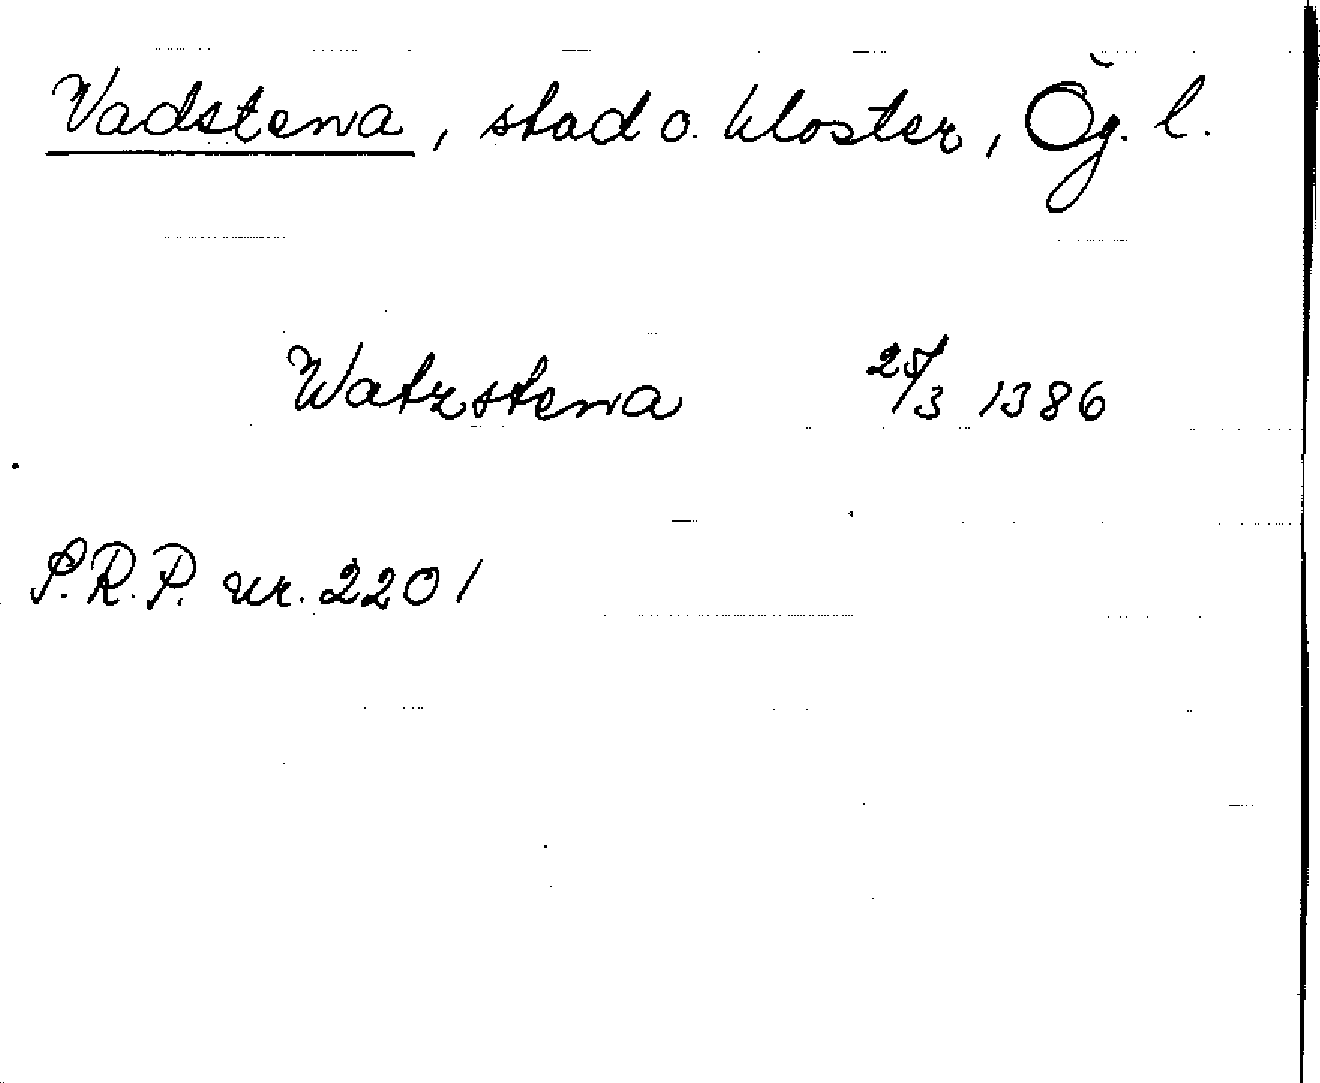 Vadstena, stad o. kloster, Ög. l.
Watzstena 25/3 1386
S.R.P. nr. 2201